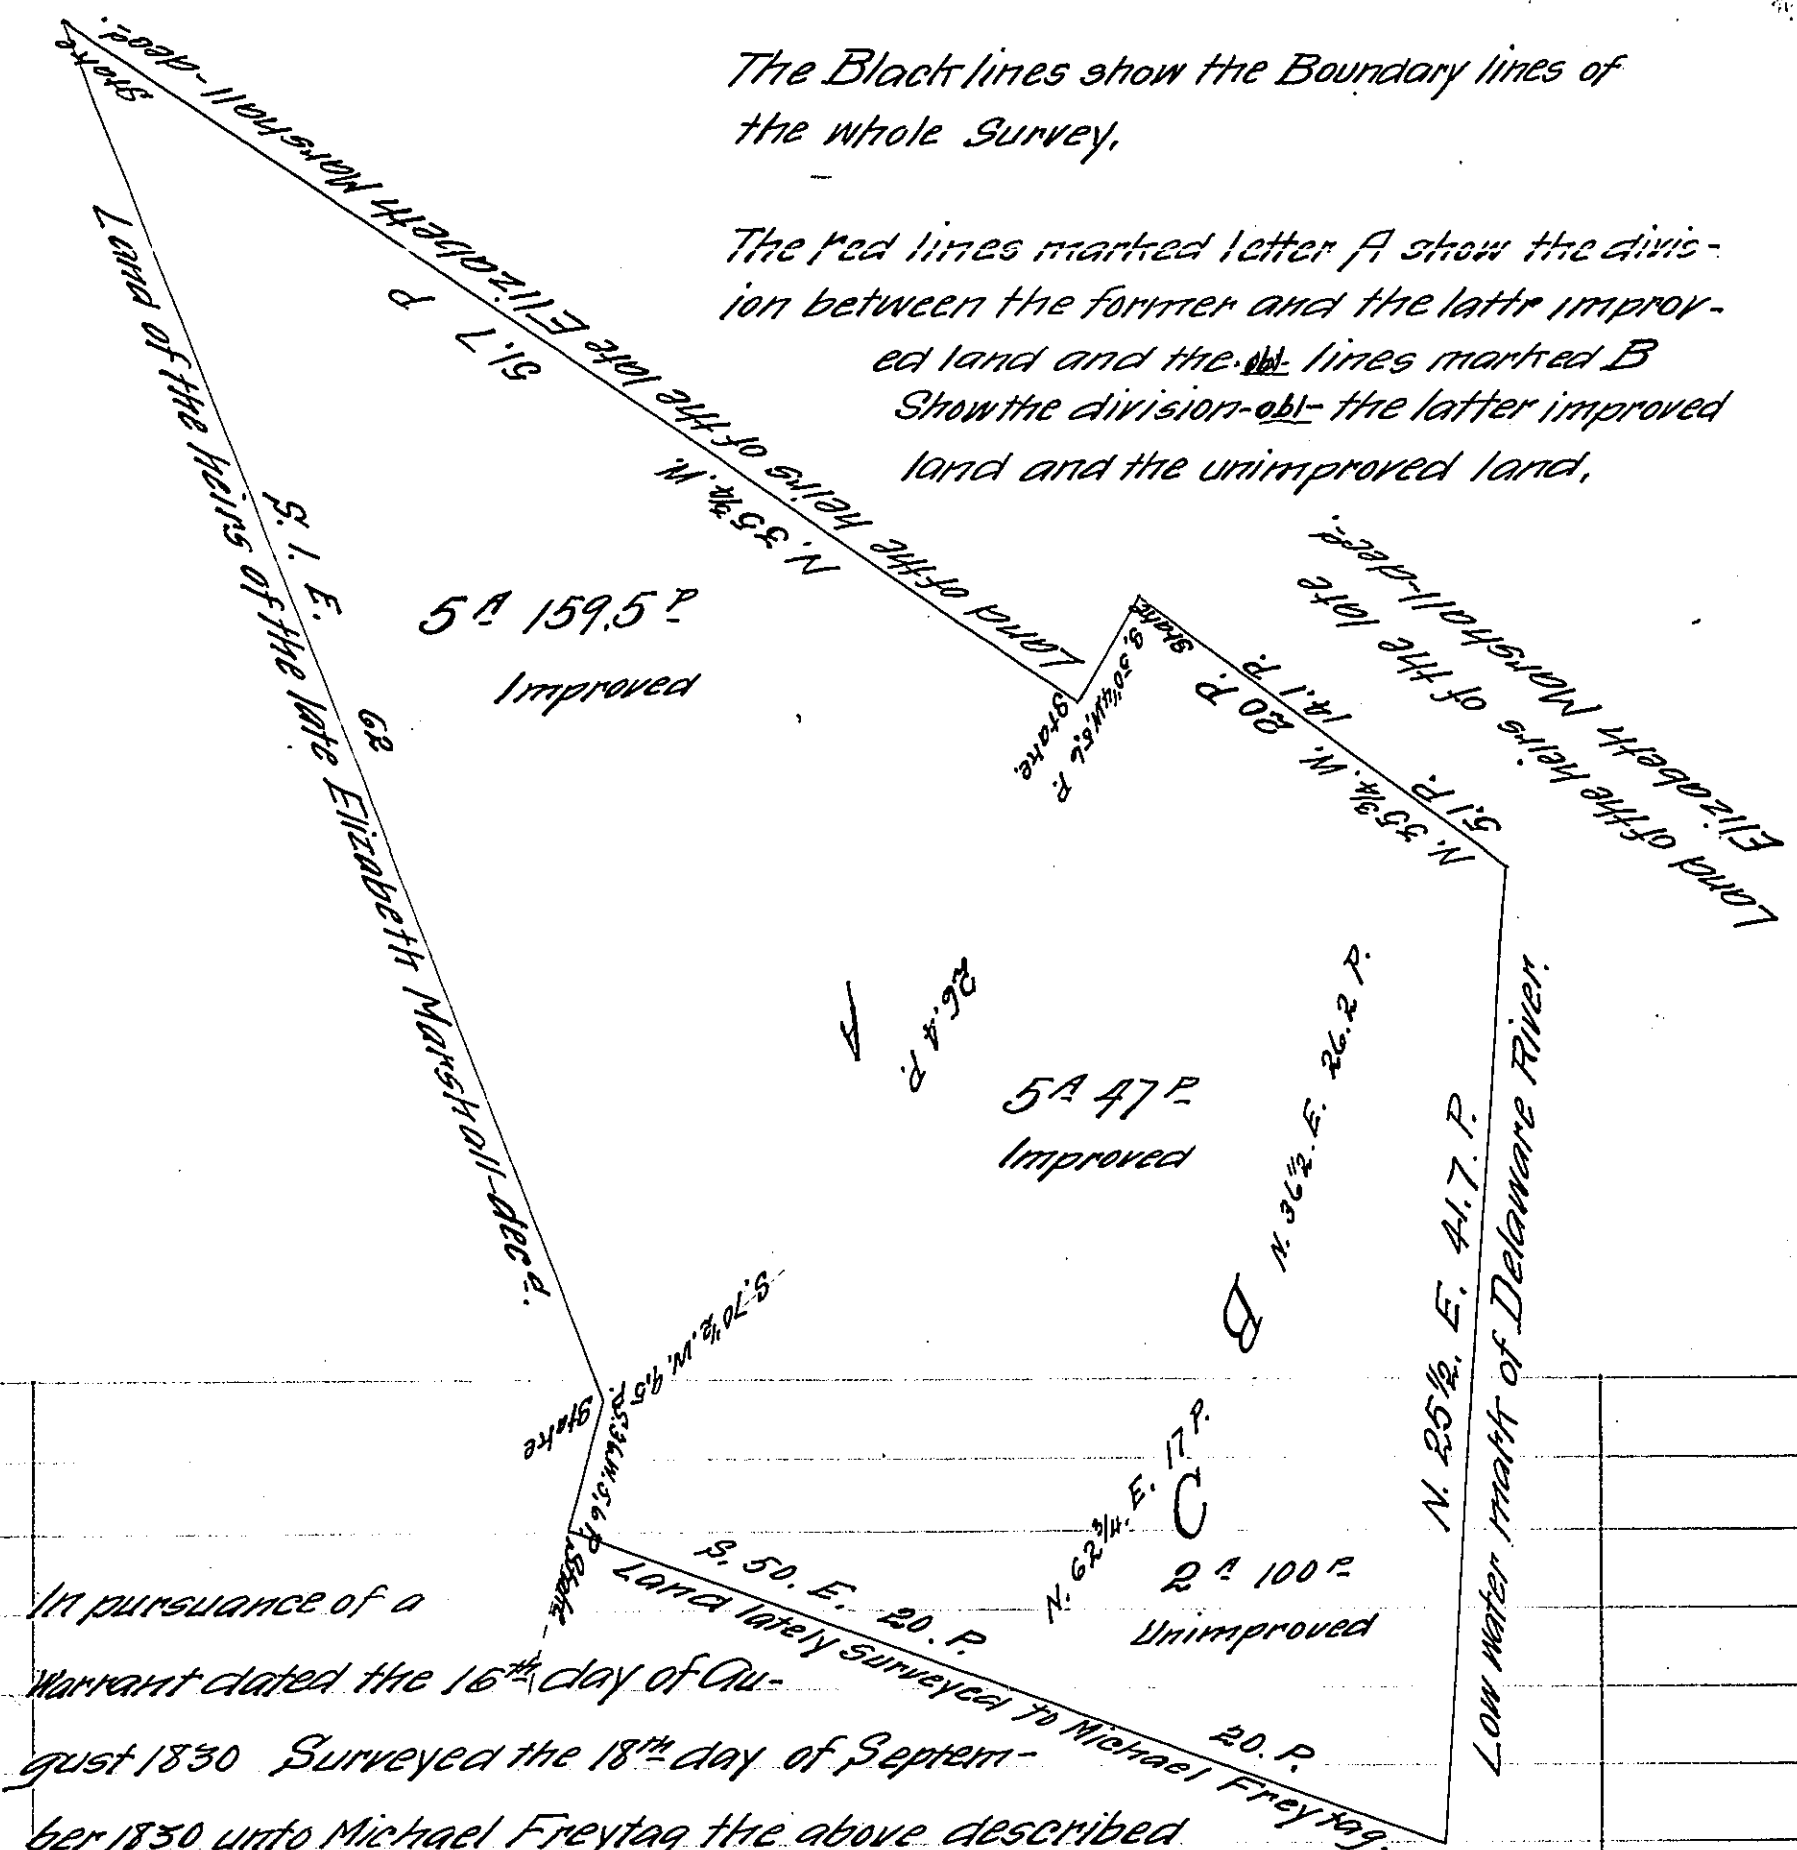 The Black lines show the Boundary lines of
the whole Survey.
The red lines marked letter A show the divis-
ion between the former and the lattr improv-
ed land and the -obl- lines marked B
Show the division -obl- the latter improved
land and the unimproved land,
Stake
Land of the heirs of the late Elizabeth Marshall-decd.
51.7 P
N. 35 3/4. W.
Land of the heirs of the late Elizabeth Marshall-decd.
S. 1. E. 62
5 A 159.5 P
Improved
Stake.
S. 50 1/4 W. 5.6 P.
Stake
N. 35 3/4. W. 20 P.
14.1 P.
5.1 P.
Land of the heirs of the late
Elizabeth Marshall-decd.
A
26.4 P.
5 A 47 P
Improved
N. 36 1/2. E. 26.2 P.
B
N. 25 1/2. E. 41.7. P.
Low water mark of Delaware River.
S. 70 1/2. W. 9.5 P.
Stake
S. 36. W. 5.6 P.
Stake
N. 62 3/4. E. 17 P.
C
2 A 100 P
Unimproved
S. 50. E. 20. P.
20. P.
Land lately Surveyed to Michael Freytag.
In pursuance of a
Warrant dated the 16th day of Au-
gust 1830 Surveyed the 18th day of Septem-
ber 1830 unto Michael Freytag the above described